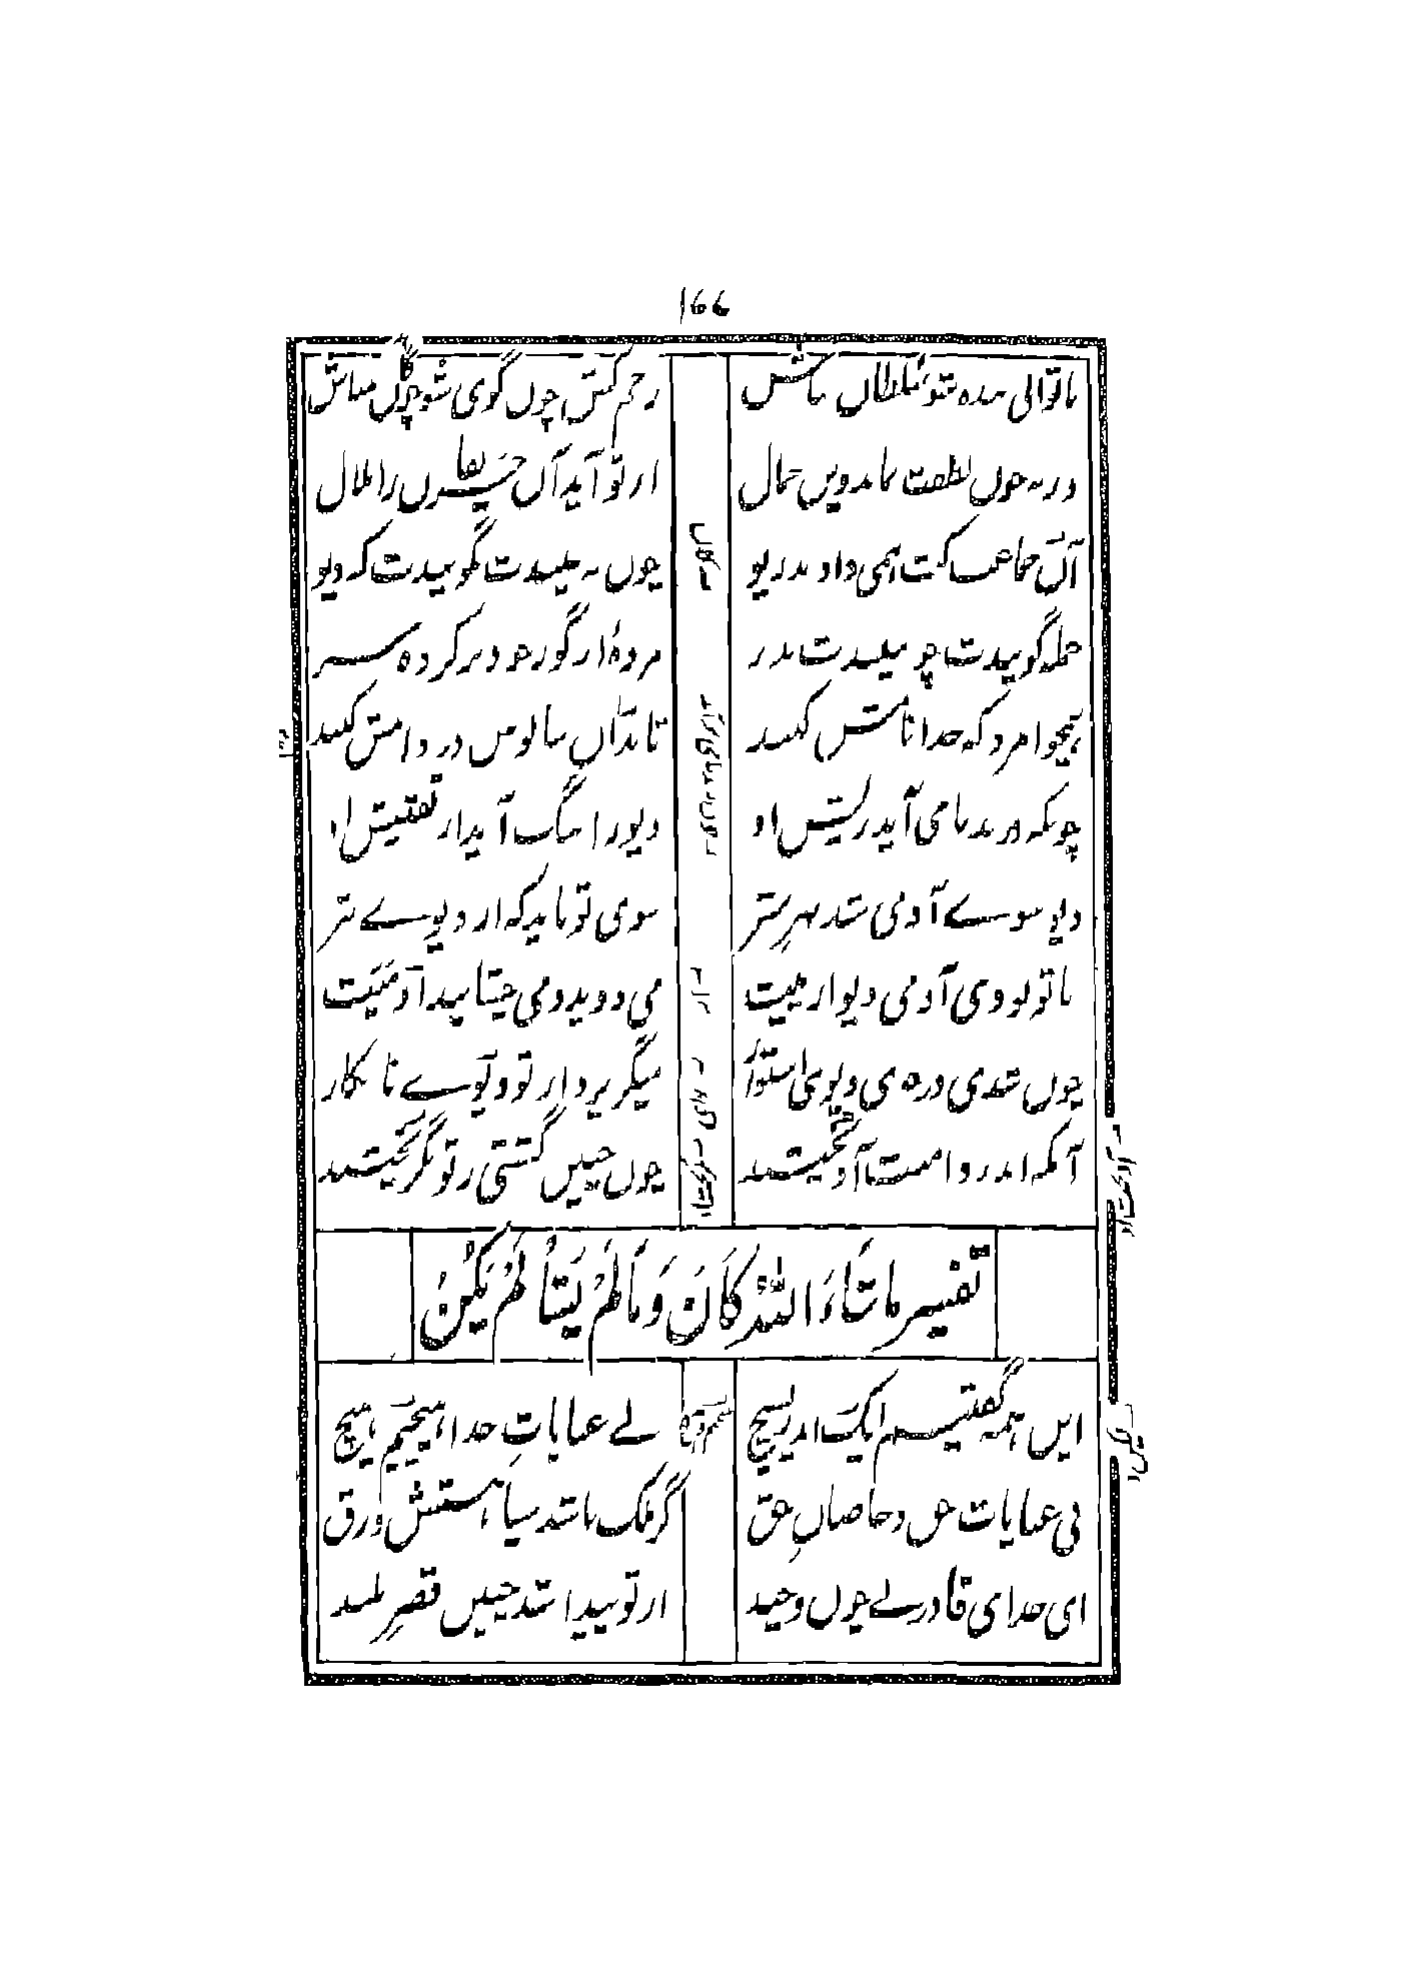 ۱۶۶
تا توانی بنده شو سلطان مباش زخم کش چون گوی شو چوگان مباش
ورنه چون لطفت نماند وین جمال از تو آید آن حریفان را ملال
آن جماعت کت همی دادند ریو چون به بینندت بگویندت که دیو
جمله گویندت چو بینندت بدر مردهٔ از گور خود بر کرده سر
همچو امرد که خدا نامش کنند تا بدان سالوس در دامش کنند
چونکه در بدنامی آید ریش او دیو را ننگ آید از تفتیش او
دیو سوے آدمی شد بهر شر سوی تو ناید که از دیوے بتر
تا تو بودی آدمی دیو از پیت می دوید و می چشانید او میت
چون شدی در خوی دیوی استوار میگریزد از تو دیوے نابکار
آنکه اندر دامنت آویختند چون چنین گشتی ز تو بگریختند
تفسیر مَا شَاءَ اللّٰهُ كَانَ وَمَا لَمْ يَشَأْ لَمْ يَكُنْ
این همه گفتیم لیک اندر بسیچ بے عنایاتِ خدا هیچیم هیچ
بی عنایات حق و خاصانِ حق گر ملک باشد سیاه هستش ورق
ای خدای قادر بے چون و چند از تو پیدا شد چنین قصرِ بلند